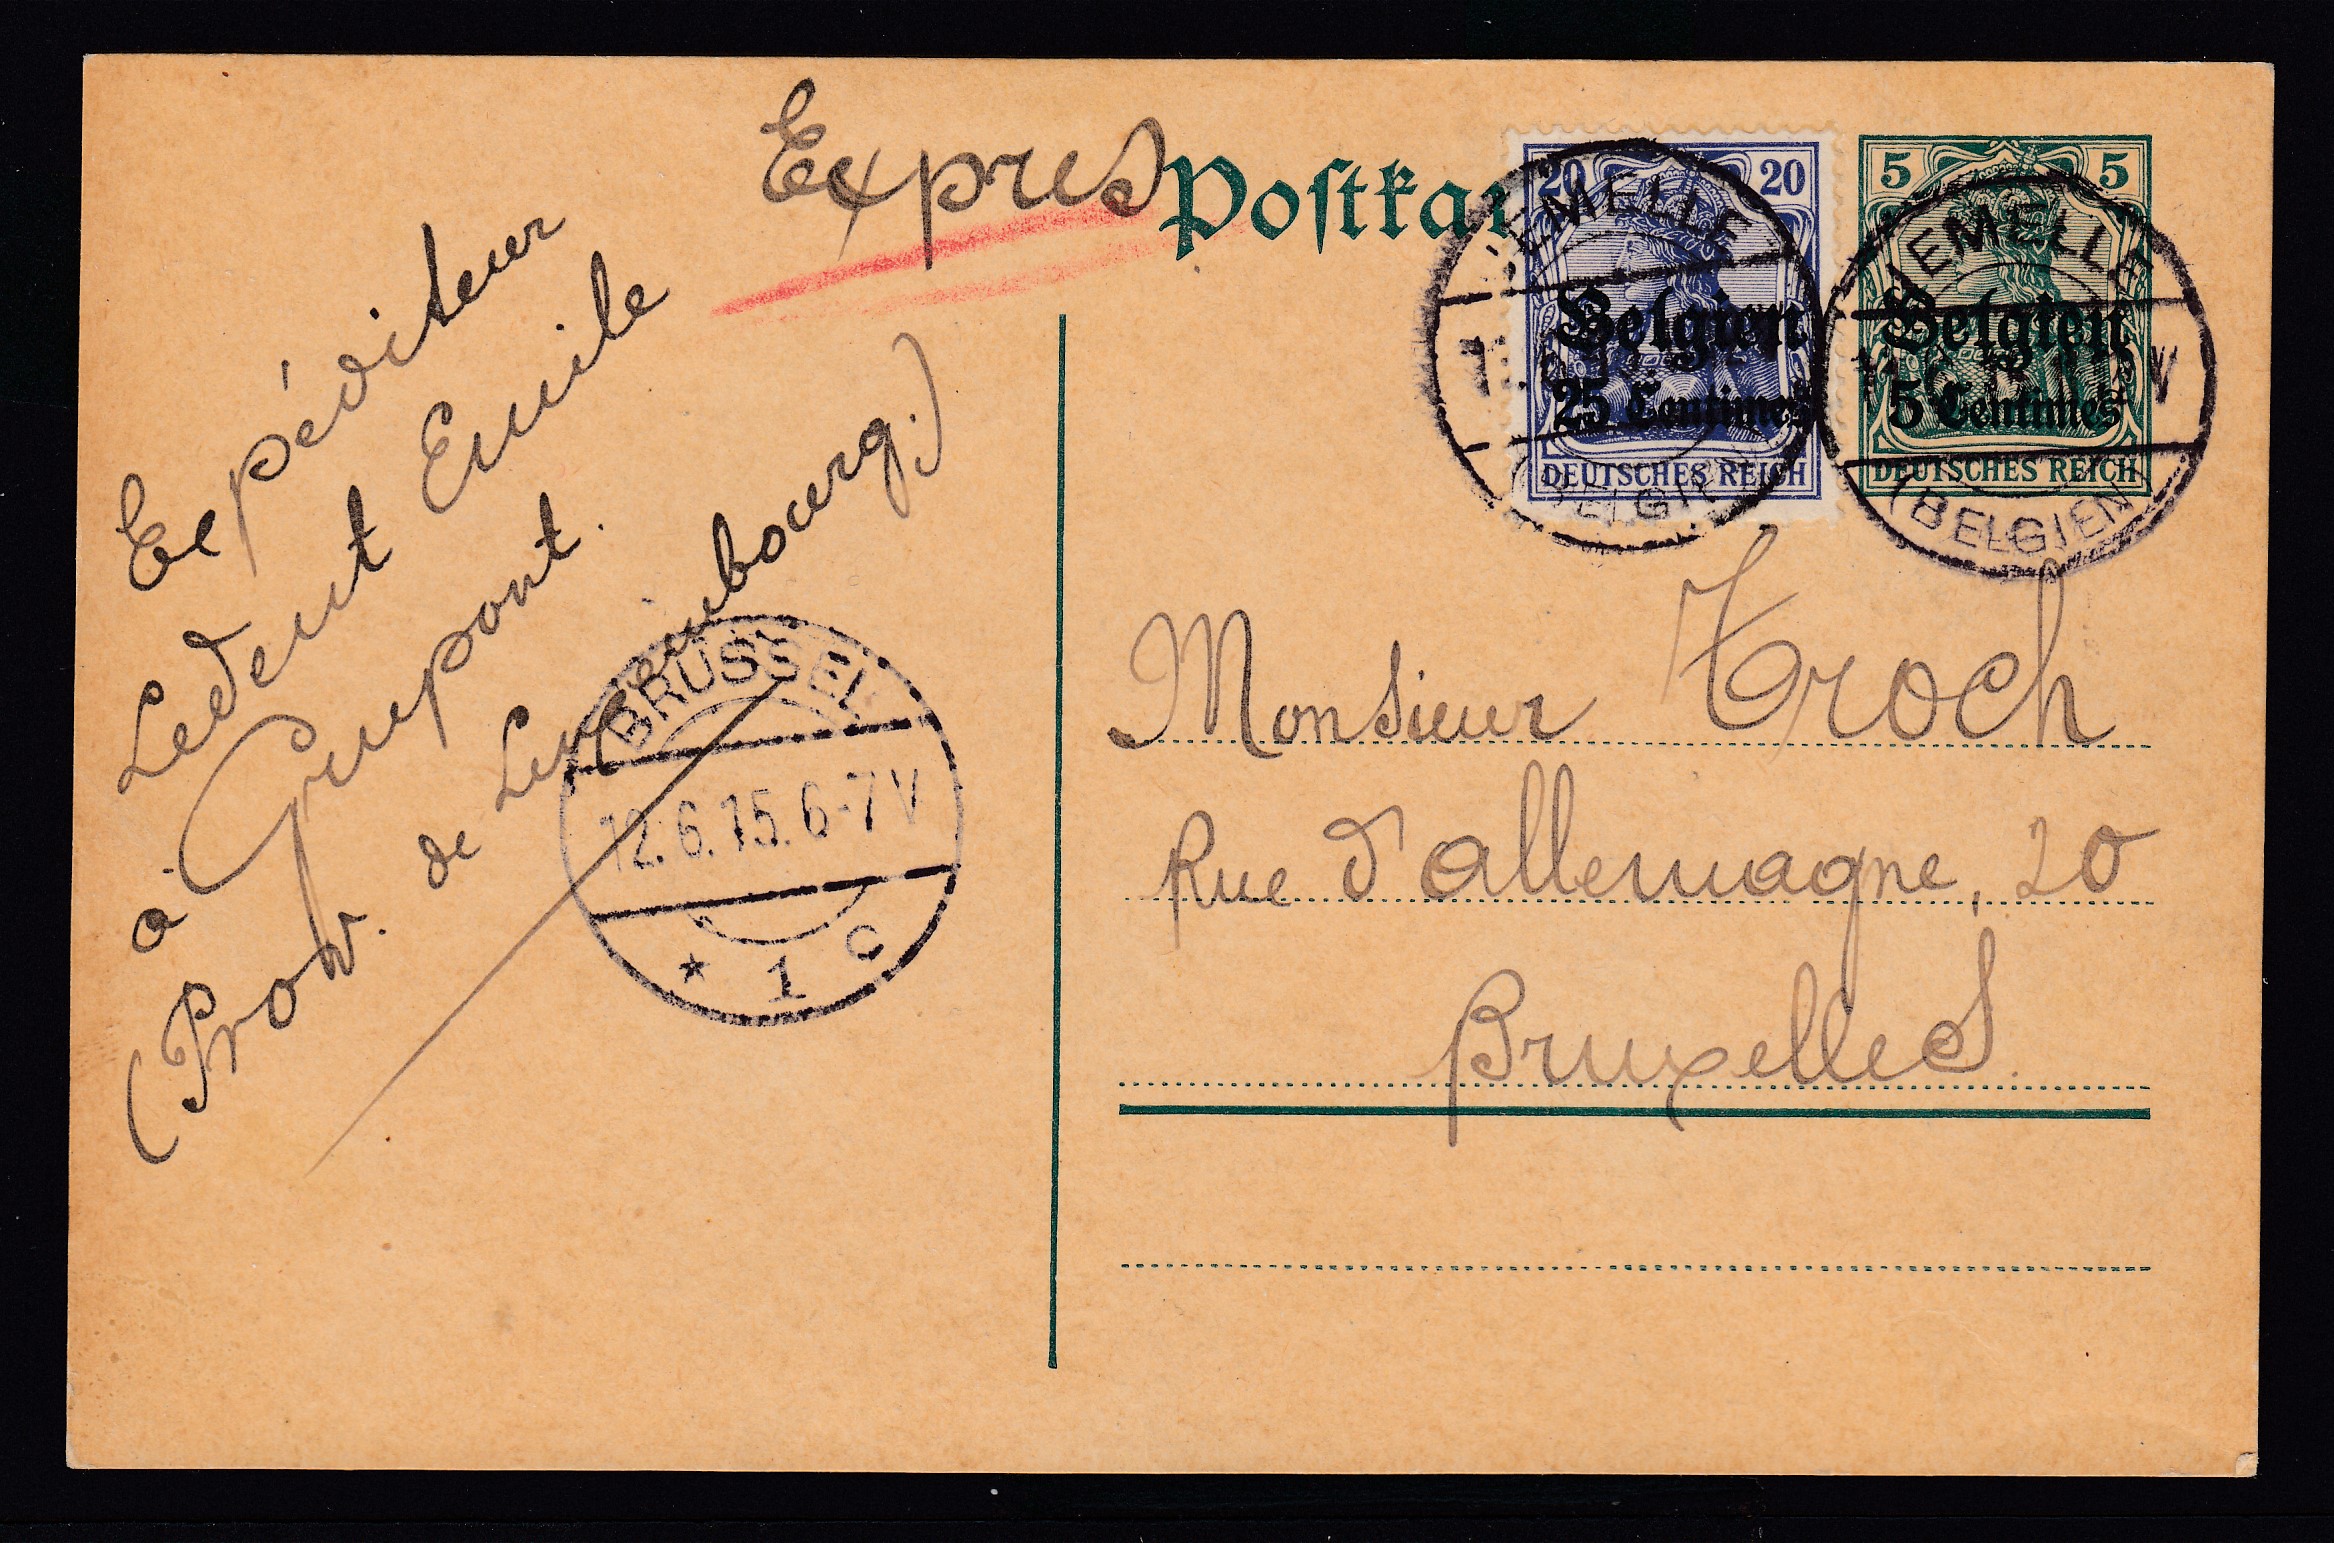 Expres
Postkar
20 20
Belgien
25 Centimes
DEUTSCHES REICH
5 5
Belgien
5 Centimes
DEUTSCHES REICH
JEMELLE
(BELGIEN)
JEMELLE
(BELGIEN)
Expéditeur
Ledent Emile
à Grupont.
(Prov. de Luxembourg.)
BRÜSSEL
12.6.15.6-7V
* 1 c
Monsieur Troch
Rue d'allemagne, 20
Bruxelles.